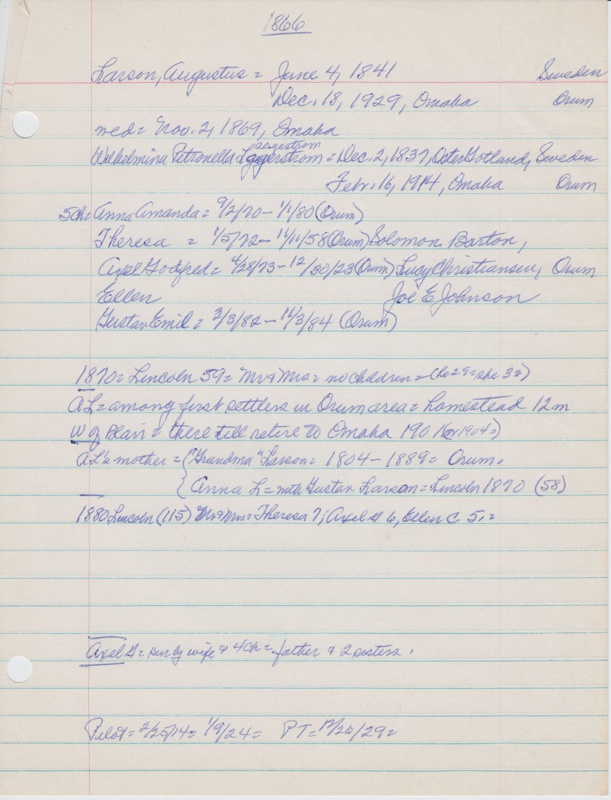 1866
Larson, Augustus = June 4, 1841 Sweden
Dec. 18, 1929, Omaha Orum
med = Nov. 2, 1869, Omaha
Wilhelmina Petronella = Dec. 2, 1837, OsterGotland, Sweden
Febr. 16, 1914, Omaha Orum
5ch = Anna Amanda = 9/2/70 - 1/1/80 (Orum)
Theresa = 1/5/72 - 11/11/58 (Orum) Solomon Barton,
Axel Godfred = 4/28/73 - 12/30/23 (Orum) Lucy Christiansen, Orum
Ellen Joe E Johnson
Gustav Emil = 3/3/82 - 11/3/84 (Orum)
1870 = Lincoln 59 = Mr & Mrs = no children = (he 29 = she 32)
AL = among first settlers in Orum area = homestead 12m
W of Blair = there till retire to Omaha 1901 (or 1904 =)
AL's mother = ("Grandma" Larson = 1804 - 1889 = Orum.
{ Anna L = with Gustav Larson = Lincoln 1870 (58)
1880 Lincoln (115) Mr & Mrs = Theresa 7; Axel G 6, Ellen C 5 =
Axel G = surv by wife & 4ch = father & 2 sisters.
Pilot = 2/25/14 = 1/9/24 = PT = /29 =